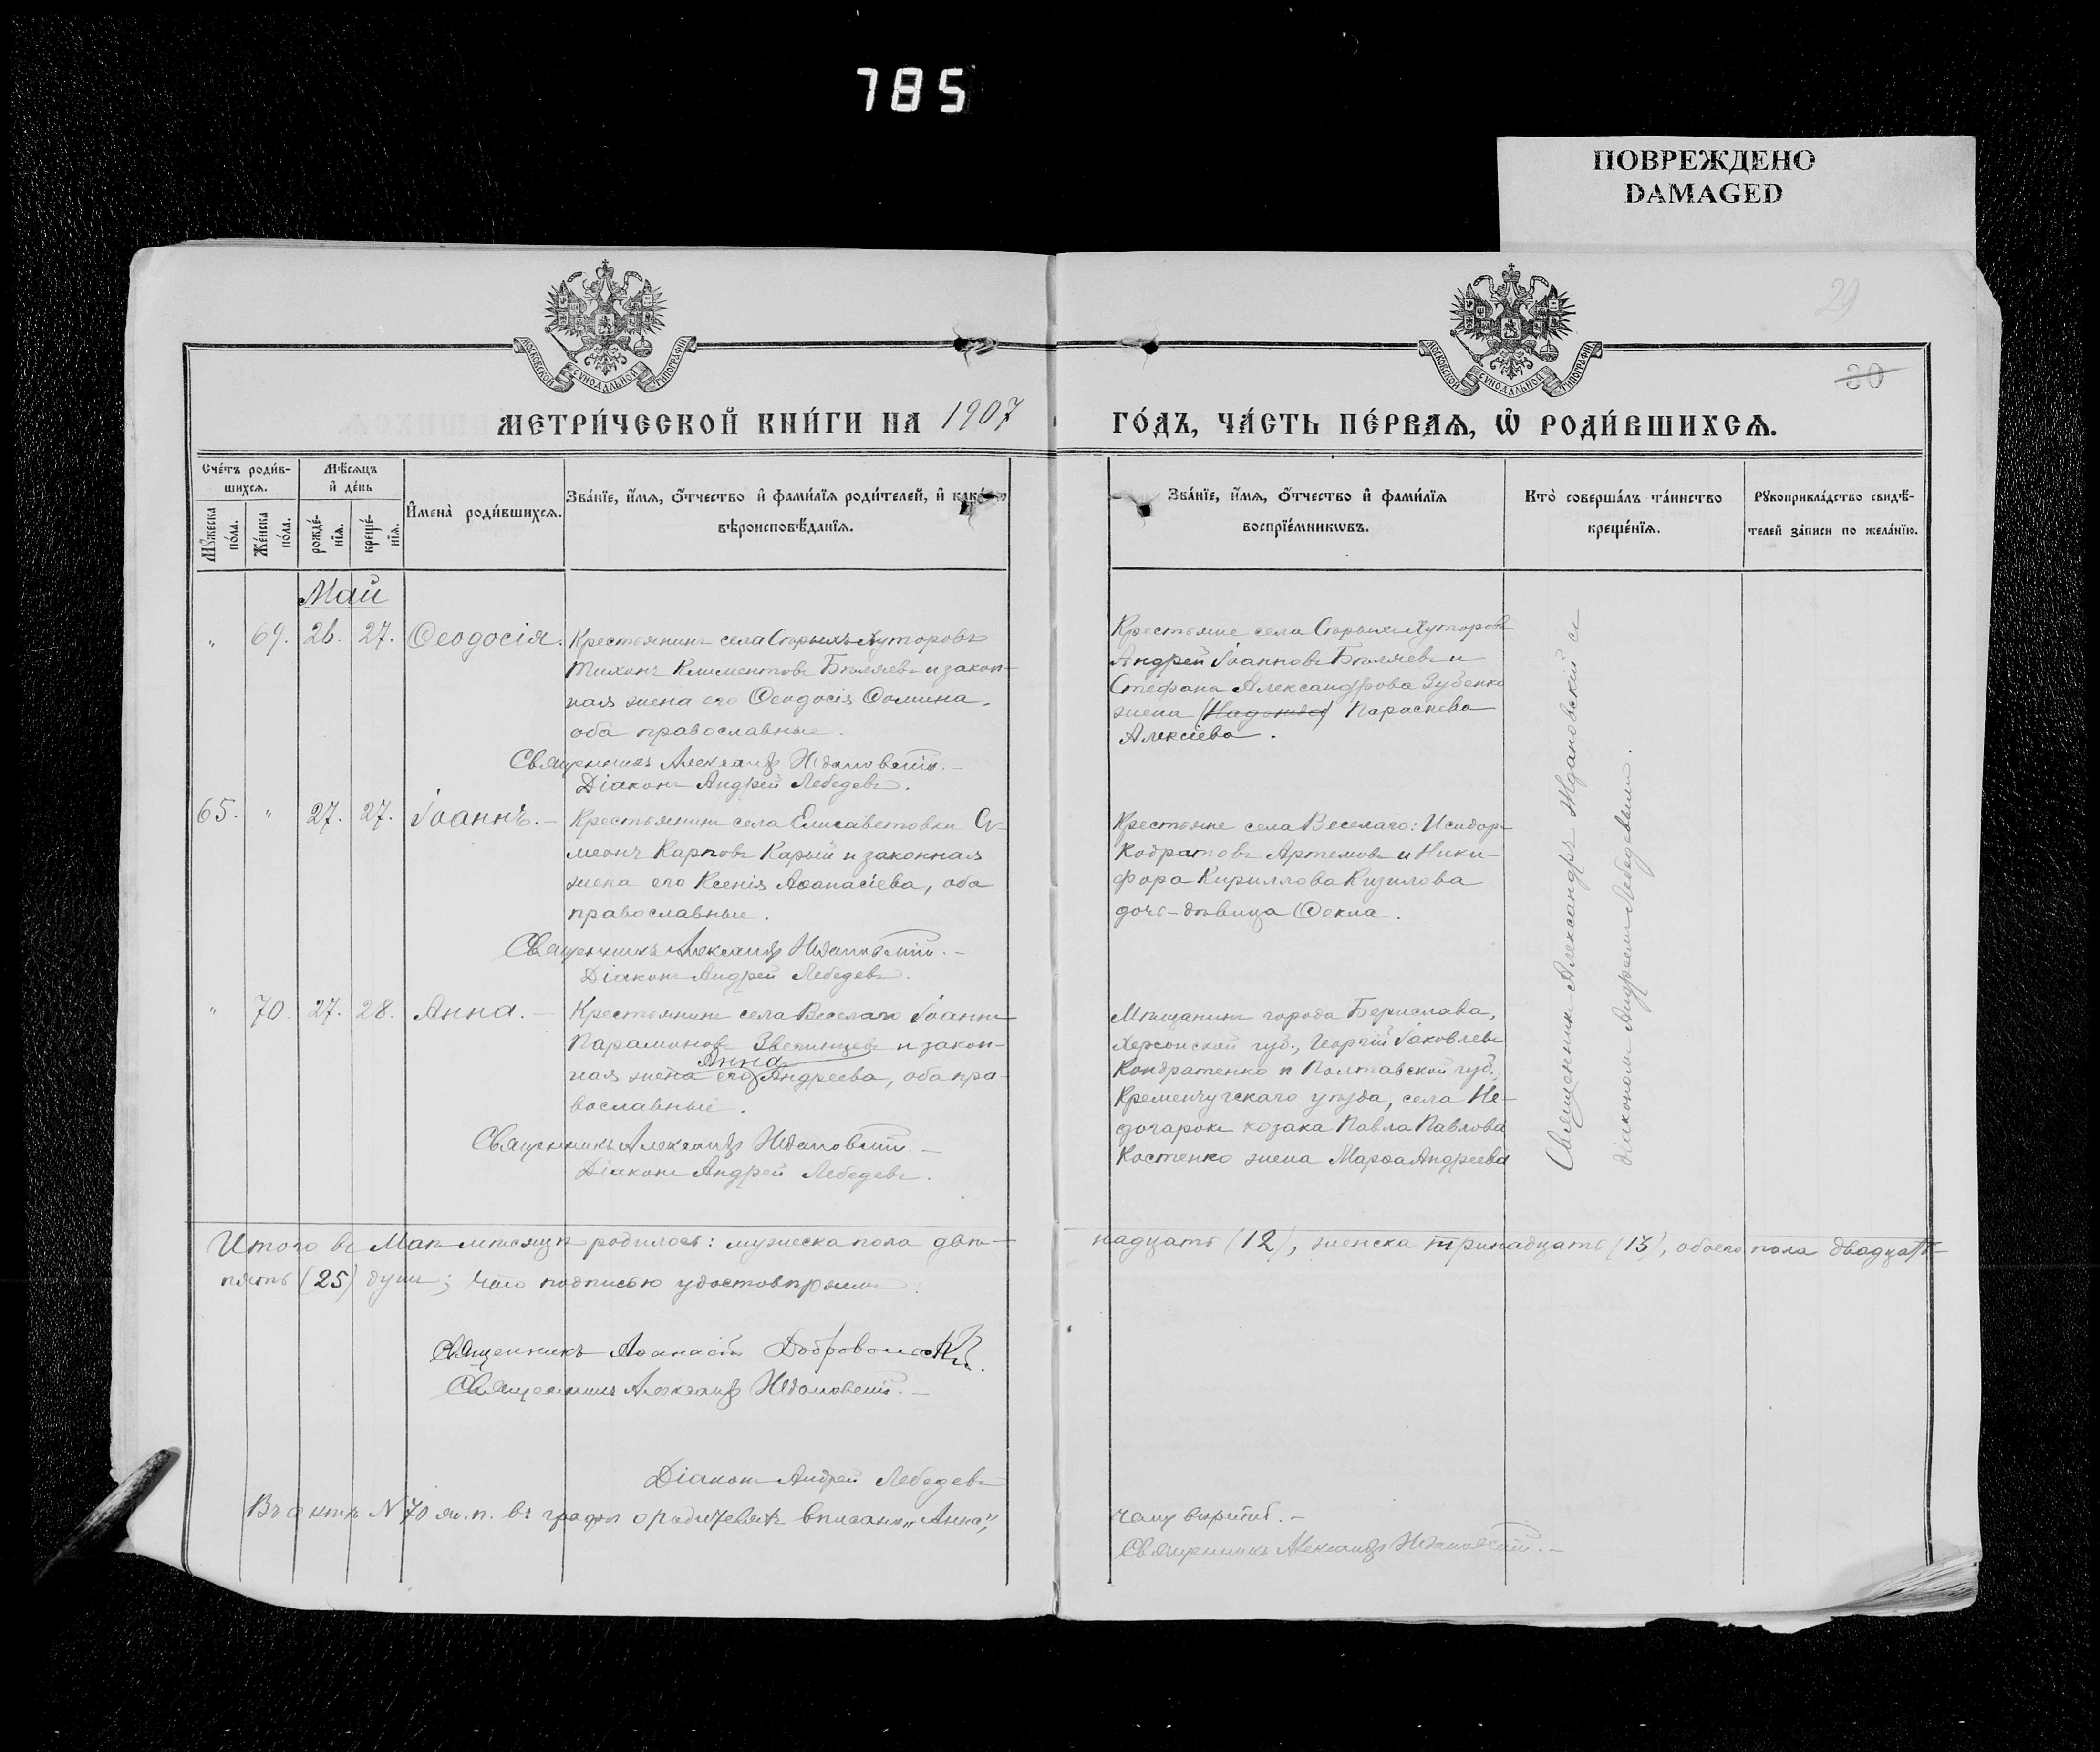 785
ПОВРЕЖДЕНО
DAMAGED
29
30
МОСКОВСКОЙ СУНОДАЛЬНОЙ ТИПОГРАФІИ
МОСКОВСКОЙ СУНОДАЛЬНОЙ ТИПОГРАФІИ
МЕТРИ́ЧЕСКОЙ КНИ́ГИ НА 1907 ГО́ДЪ, ЧА́СТЬ ПЕ́РВАѦ, Ѽ РОДИ́ВШИХСѦ.
Сче́тъ роди́в-
шихсѧ.
Мꙋ́жеска по́ла.
Же́нска по́ла.
Мѣ́сѧцъ
и҆ де́нь
рожде́-нїѧ.
креще́-нїѧ.
И҆мена̀ роди́вшихсѧ.
Зва́нїе, и҆́мѧ, ѻ҆́тчество и҆ фами́лїѧ роди́телей, и҆ како́гѡ
вѣроисповѣ́данїѧ.
Зва́нїе, и҆́мѧ, ѻ҆́тчество и҆ фами́лїѧ
воспрїе́мникѡвъ.
Кто̀ соверша́лъ та́инство
креще́нїѧ.
Рꙋкоприкла́дство свидѣ́-
телей за́писи по жела́нїю.
Май
" 69. 26. 27. Ѳеодосія. Крестьянинъ села Сѣрыхъ Хуторовъ
Тихонъ Климентовъ Бѣляевъ и закон-
ная жена его Ѳеодосія Ѳомина,
оба православные.
Священникъ Александръ Ждановскій.
Діаконъ Андрей Лебедевъ.
Крестьяне села Сѣрыхъ Хуторовъ
Андрей Іоанновъ Бѣляевъ и
Стефана Александрова Зубенко
жена (Надежда) Параскева
Алексіева.
65. " 27. 27. Іоаннъ. Крестьянинъ села Елисаветовки Си-
меонъ Карповъ Карый и законная
жена его Ксенія Аѳанасіева, оба
православные.
Священникъ Александръ Ждановскій.
Діаконъ Андрей Лебедевъ.
Крестьяне села Веселаго: Исидоръ
Кодратовъ Артемовъ и Ники-
фора Кириллова Кизилова
дочь-дѣвица Ѳекла.
" 70. 27. 28. Анна. Крестьянинъ села Веселаго Іоаннъ
Парамоновъ Звегинцевъ и закон-
Анна
ная жена его Андреева, оба пра-
вославные.
Священникъ Александръ Ждановскій.
Діаконъ Андрей Лебедевъ.
Мѣщанинъ города Берислава,
Херсонской губ., Георгій Іаковлевъ
Кондратенко и Полтавской губ.,
Кременчугскаго уѣзда, села Не-
догарокъ козака Павла Павлова
Костенко жена Марѳа Андреева
Священникъ Александръ Ждановскій съ
діакономъ Андреемъ Лебедевымъ.
Итого въ Маѣ мѣсяцѣ родилось: мужеска пола двѣ-
надцать (12), женска тринадцать (13), обоего пола двадцать
пять (25) душъ; что подписью удостовѣряемъ.
Священникъ Аѳанасій Добровольскій.
Священникъ Александръ Ждановскій.
Діаконъ Андрей Лебедевъ
Въ актѣ N 70 ж. п. въ графѣ о родителяхъ вписано „Анна",
чему вѣрить.
Священникъ Александръ Ждановскій.